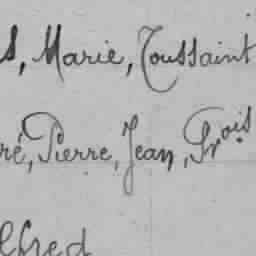 s, Marie, Toussaint
ré, Pierre, Jean, Frois
lfred